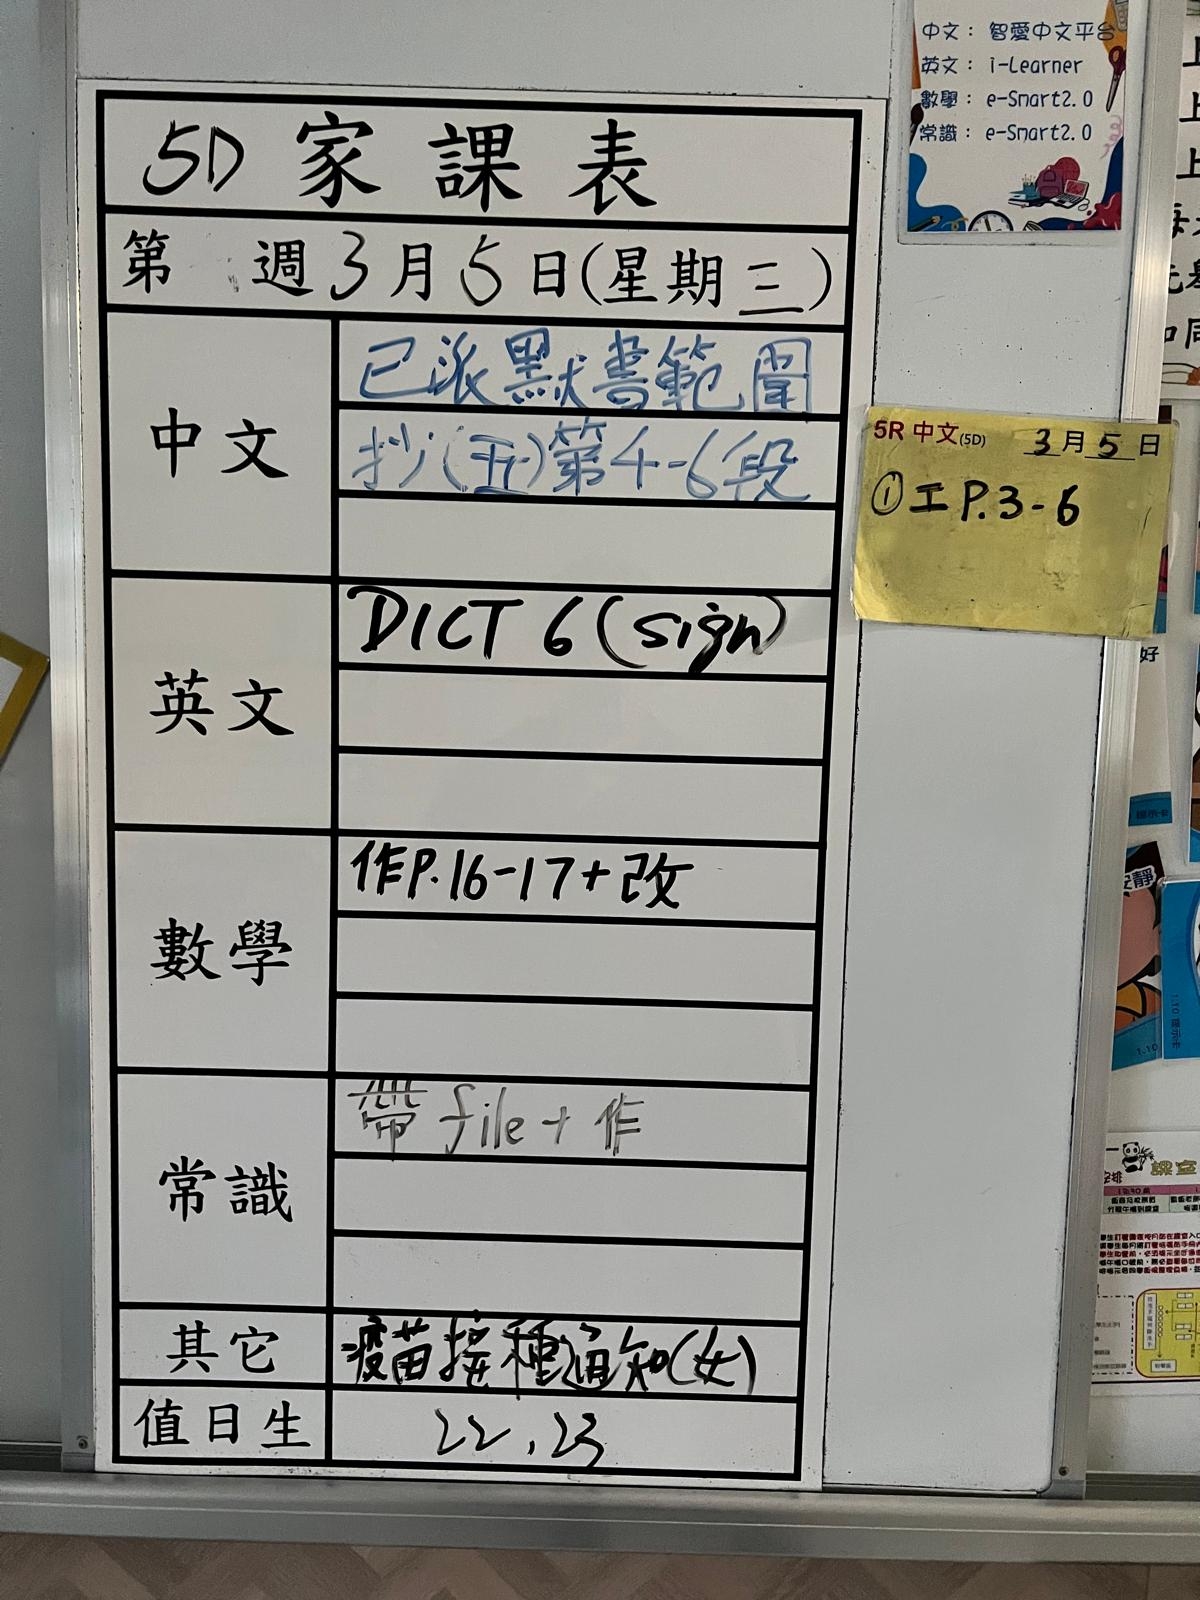 5D 家課表
第 週3月5日(星期三)
中文
已派默書範圍
抄(五)第4-6段
英文
DICT 6 (sign)
數學
作P.16-17+改
常識
帶 file + 作
其它
疫苗接種通知(女)
值日生
22,23
中文： 智愛中文平台
英文： i-Learner
數學： e-Smart2.0
常識： e-Smart2.0
5R 中文(5D) 3月5日
①工 P.3-6
好
安靜
1.10 提示卡
1.10
課室